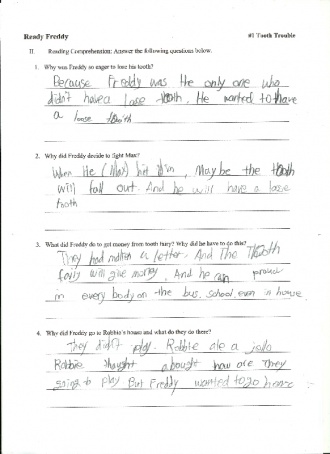 Ready Freddy #1 Tooth Trouble
II. Reading Comprehension: Answer the following questions below.
1. Why was Freddy so eager to lose his tooth?
Because Freddy was the only one who
didn't have a lose tooth. He wanted to have
a loose tooth
2. Why did Freddy decide to fight Max?
When He (Max) hit him, Maybe the tooth
will fall out. And he will have a lose
tooth
3. What did Freddy do to get money from tooth fairy? Why did he have to do this?
They had a letter. And The Tooth
fairy will give money. And he can
in every body on the bus, school, even in house
4. Why did Freddy go to Robbie's house and what do they do there?
They didn't play. Robbie ate a jello
Robbie thought abought how are they
going to play But Freddy wanted to go house